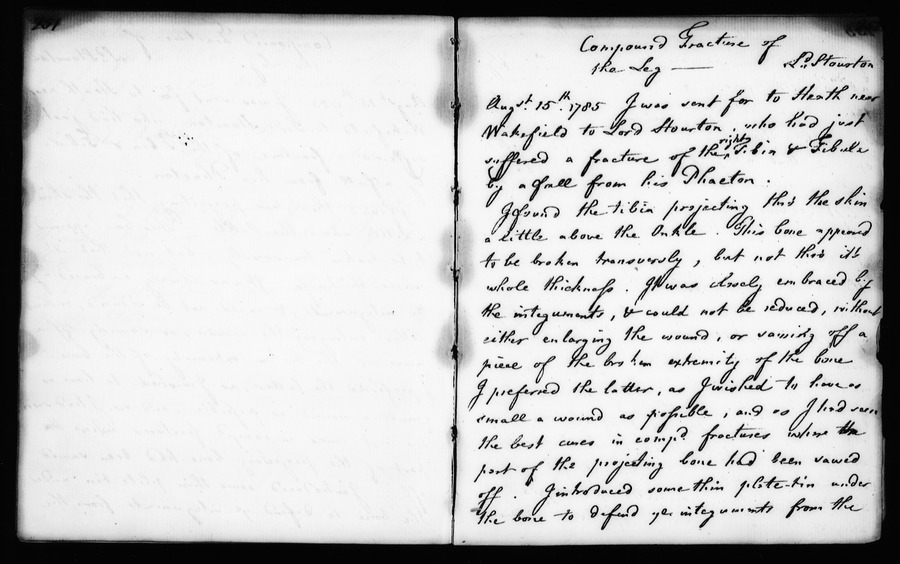 Compound Fracture of
the Leg — Ld. Stourton
Augst. 15th. 1785 I was sent for to Heath near
Wakefield to Lord Stourton, who had just
suffered a fracture of the right Tibia & Fibula
by a fall from his Phaeton.
I found the tibia projecting thro the skin
a little above the Onkle. This bone appeared
to be broken transversly, but not thro it's
whole thickness. It was closely embraced by
the integuments, & could not be reduced, without
either enlarging the wound, or sawing off a
piece of the broken extremity of the bone
I preferred the latter, as I wished to have as
small a wound as possible, and as I had seen
the best cures in compd. fractures where the
part of the projecting bone had been sawed
off. I introduced some thin plate-tin under
the bone to defend ye integuments from the